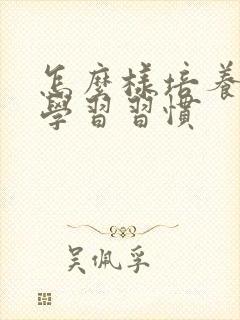 怎麼樣培養
學習習慣
吳佩孚